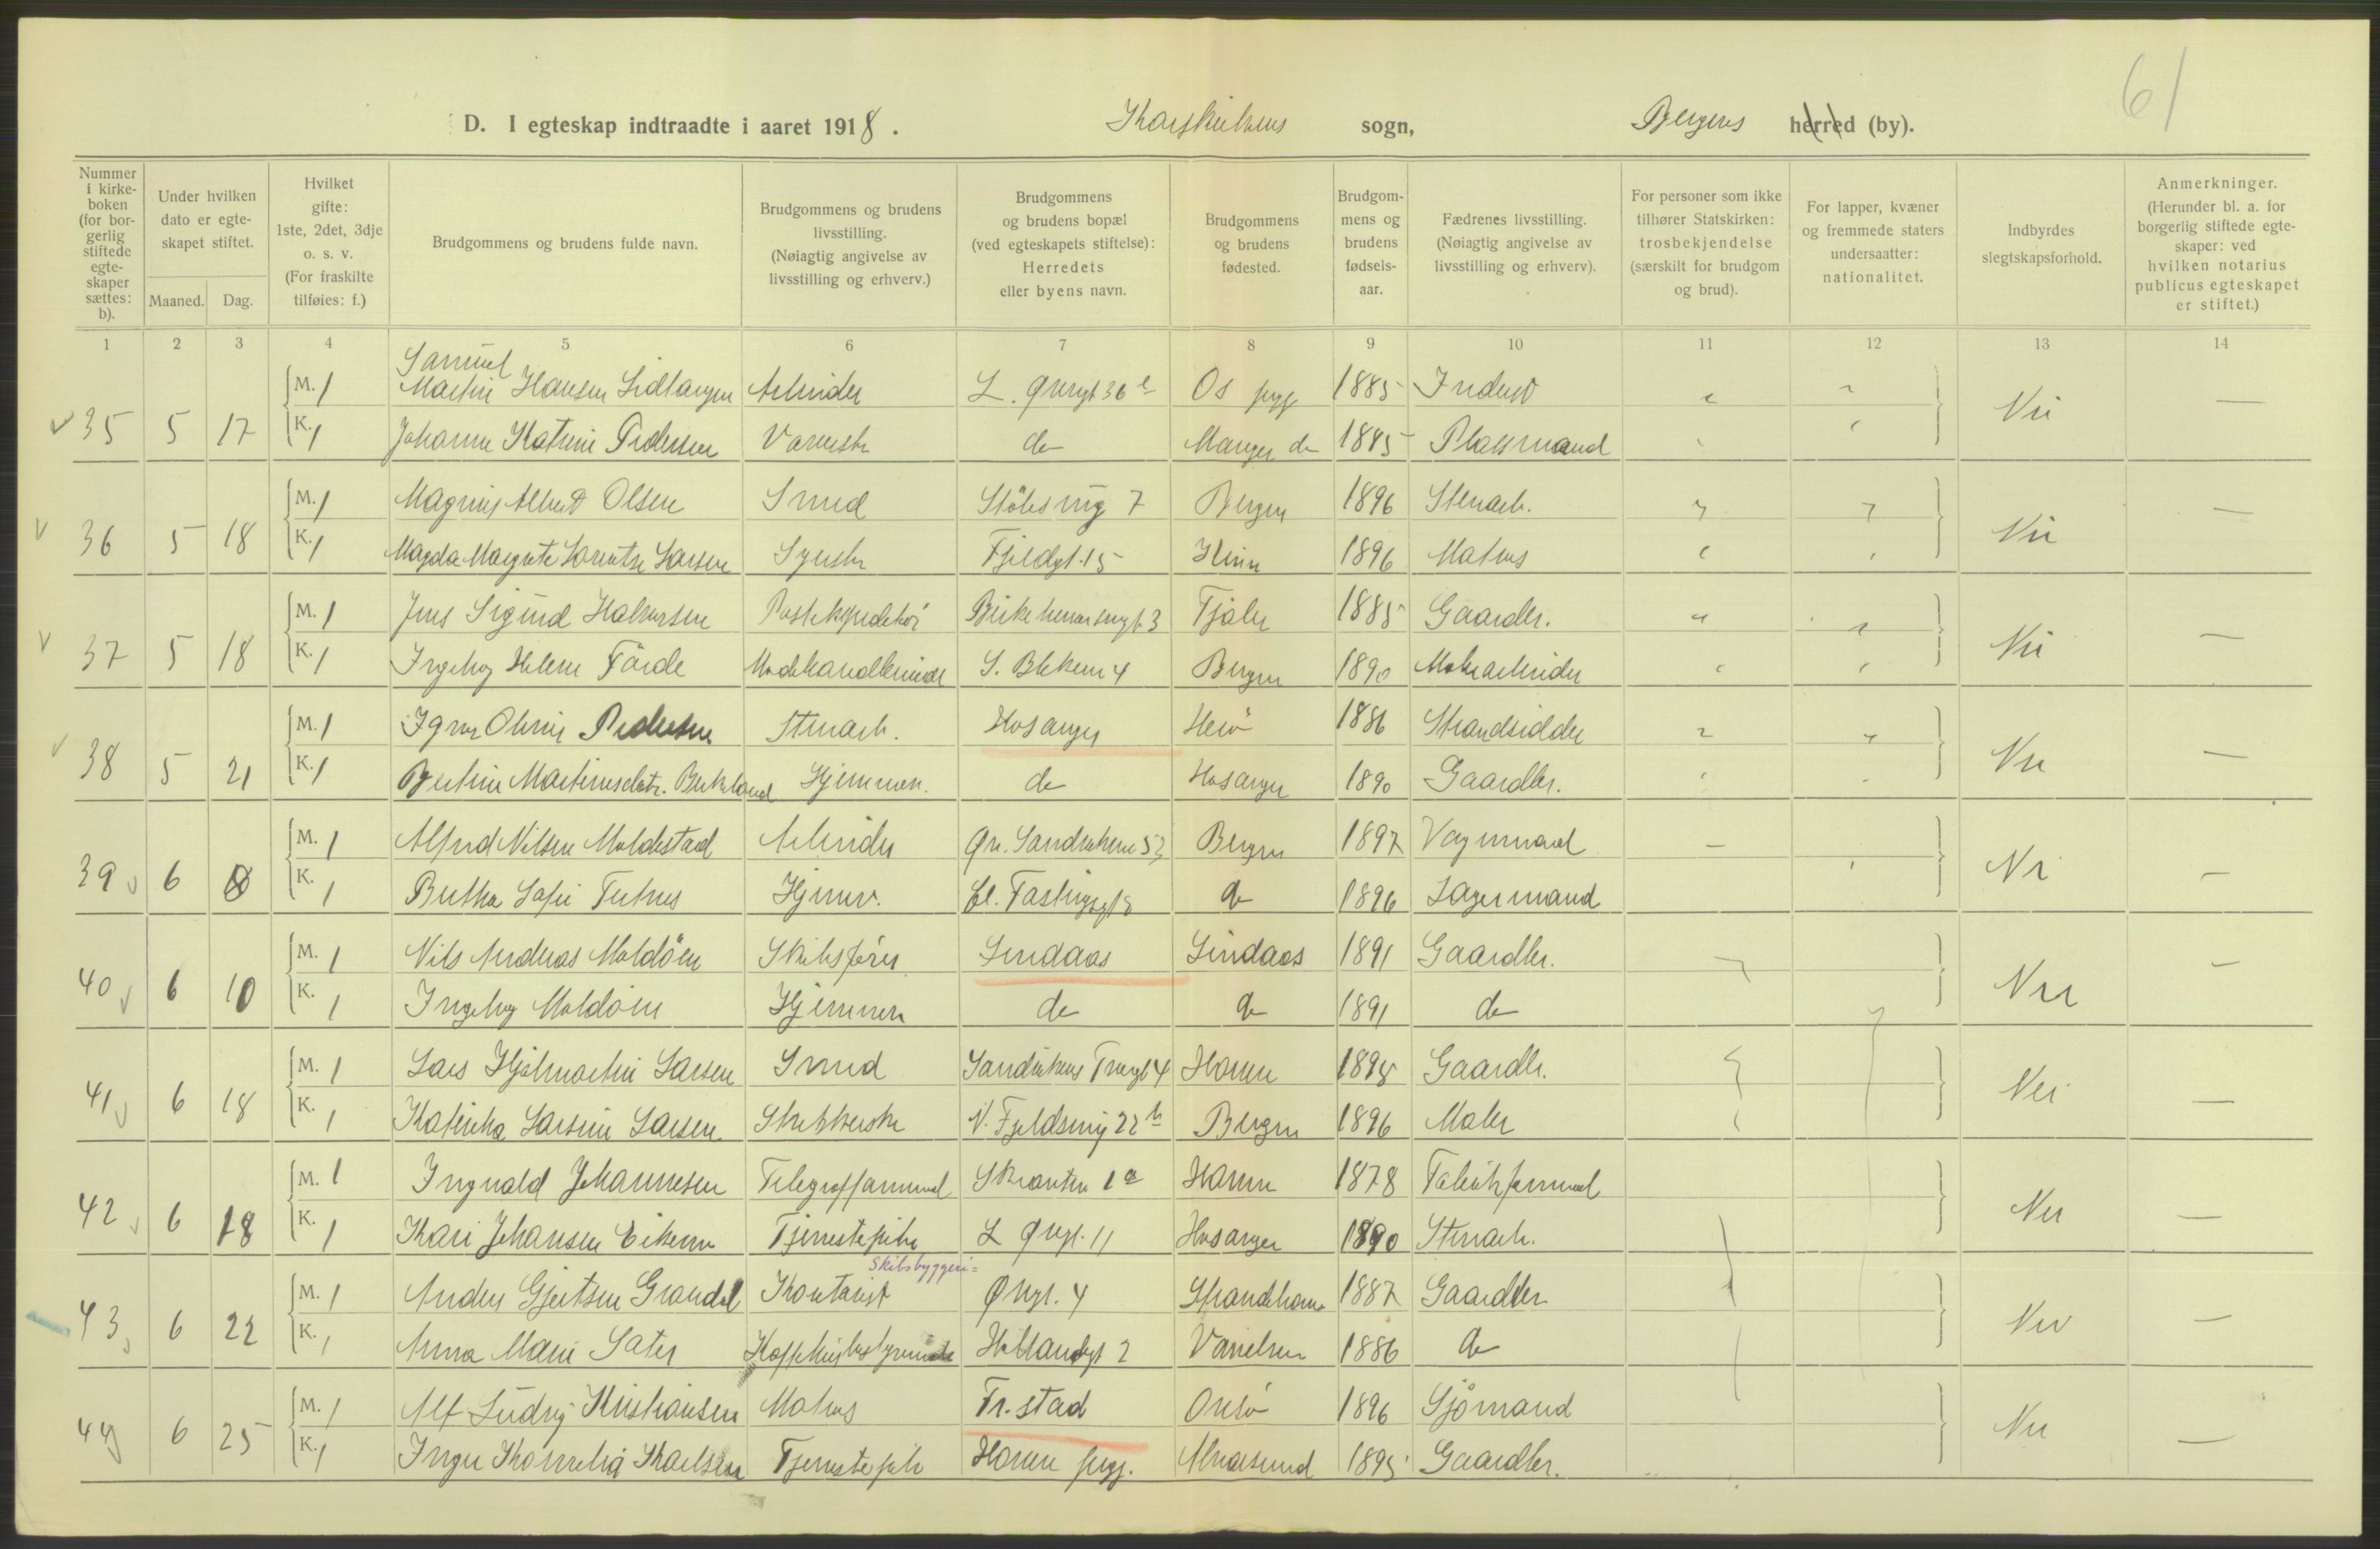 61
D. I egteskap indtraadte i aaret 1918. Korskirkens sogn, Bergens herred (by).
Nummer i kirkeboken (for borgerlig stiftede egteskaper sættes: b).
Under hvilken dato er egteskapet stiftet.
Maaned. Dag.
Hvilket gifte: 1ste, 2det, 3dje o. s. v. (For fraskilte tilføies: f.)
Brudgommens og brudens fulde navn.
Brudgommens og brudens livsstilling. (Nøiagtig angivelse av livsstilling og erhverv.)
Brudgommens og brudens bopæl (ved egteskapets stiftelse): Herredets eller byens navn.
Brudgommens og brudens fødested.
Brudgommens og brudens fødselsaar.
Fædrenes livsstilling. (Nøiagtig angivelse av livsstilling og erhverv).
For personer som ikke tilhører Statskirken: trosbekjendelse (særskilt for brudgom og brud).
For lapper, kvæner og fremmede staters undersaatter: nationalitet.
Indbyrdes slegtskapsforhold.
Anmerkninger. (Herunder bl. a. for borgerlig stiftede egteskaper: ved hvilken notarius publicus egteskapet er stiftet.)
1 2 3 4 5 6 7 8 9 10 11 12 13 14
Samuel
M. 1 Martin Hansen Lidtangen Arbeider L. Øvregt 36 Os 1885 Inderst
35 5 17 Nei —
K. 1 Johanne Katrine Pedersen Vaverske do Manger do 1885 Plassmand
M. 1 Magnus Albert Olsen Smed Stölesmg 7 Bergen 1896 Stenarb.
36 5 18 Nei —
K. 1 Magda Margrete Lorentze Larsen Syerske Fjeldgt. 15 Kinn 1896 Matros
M. 1 Jens Sigurd Halvorsen Postekspeditör Birkebeinersgt. 3 Fjaler 1885 Gaardbr.
37 5 18 Nei —
K. 1 Ingeborg Helene Förde Modehandlerinde S. Blekevei 4 Bergen 1890 Malerarbeider
M. 1 Olsen Pedersen Stenarb. Hosanger Herö 1886 Strandsidder
38 5 21 Nei —
K. 1 Bertine Martinusdatr. Birkeland Hjemmev. do Hosanger 1890 Gaardbr.
M. 1 Alfred Nilsen Moldestad Arbeider Øv. Sandvikvei 52 Bergen 1897 Vognmand —
39 6 8 Nei —
K. 1 Bertha Sofie Tertnes Hjemv. Cl. Fastingsgt 8 do 1896 Lagermand
M. 1 Nils Andreas Moldöen Skibsfører Lindaas Lindaas 1891 Gaardbr.
40 6 10 Nei —
K. 1 Ingeborg Moldöen Hjemmev do do 1891 do
M. 1 Lars Hjalmartin Larsen Smed Sandvikens Tvergt 4 Haus 1895 Gaardbr.
41 6 18 Nei —
K. 1 Katinka Larsine Larsen Strikkerske N. Fjeldsmug 22 b Bergen 1896 Maler
M. 1 Ingvald Johannesen Telegrafformand Skranten 1 a Hamre 1878 Fabrikformand
42 6 18 Nei —
K. 1 Kari Johansen Eikemo Tjenestepike L Øvregt. 11 Hosanger 1890 Stenarb.
Skibsbyggeri=
M. 1 Anders Gjertsen Grandal Kontorist Øvregt. 4 Strandebarm 1887 Gaardbr
43 6 22 Nei —
K. 1 Anna Marie Sater Kaffehusbestyrerinde Hollendergt 2 Vanelven 1886 do
M. 1 Alf Ludvig Kristiansen Matros Fr.stad Onsö 1896 Sjömand
44 6 25 Nei —
K. 1 Inger Kornelia Karlsen Tjenestepike Hamre Alversund 1895 Gaardbr.